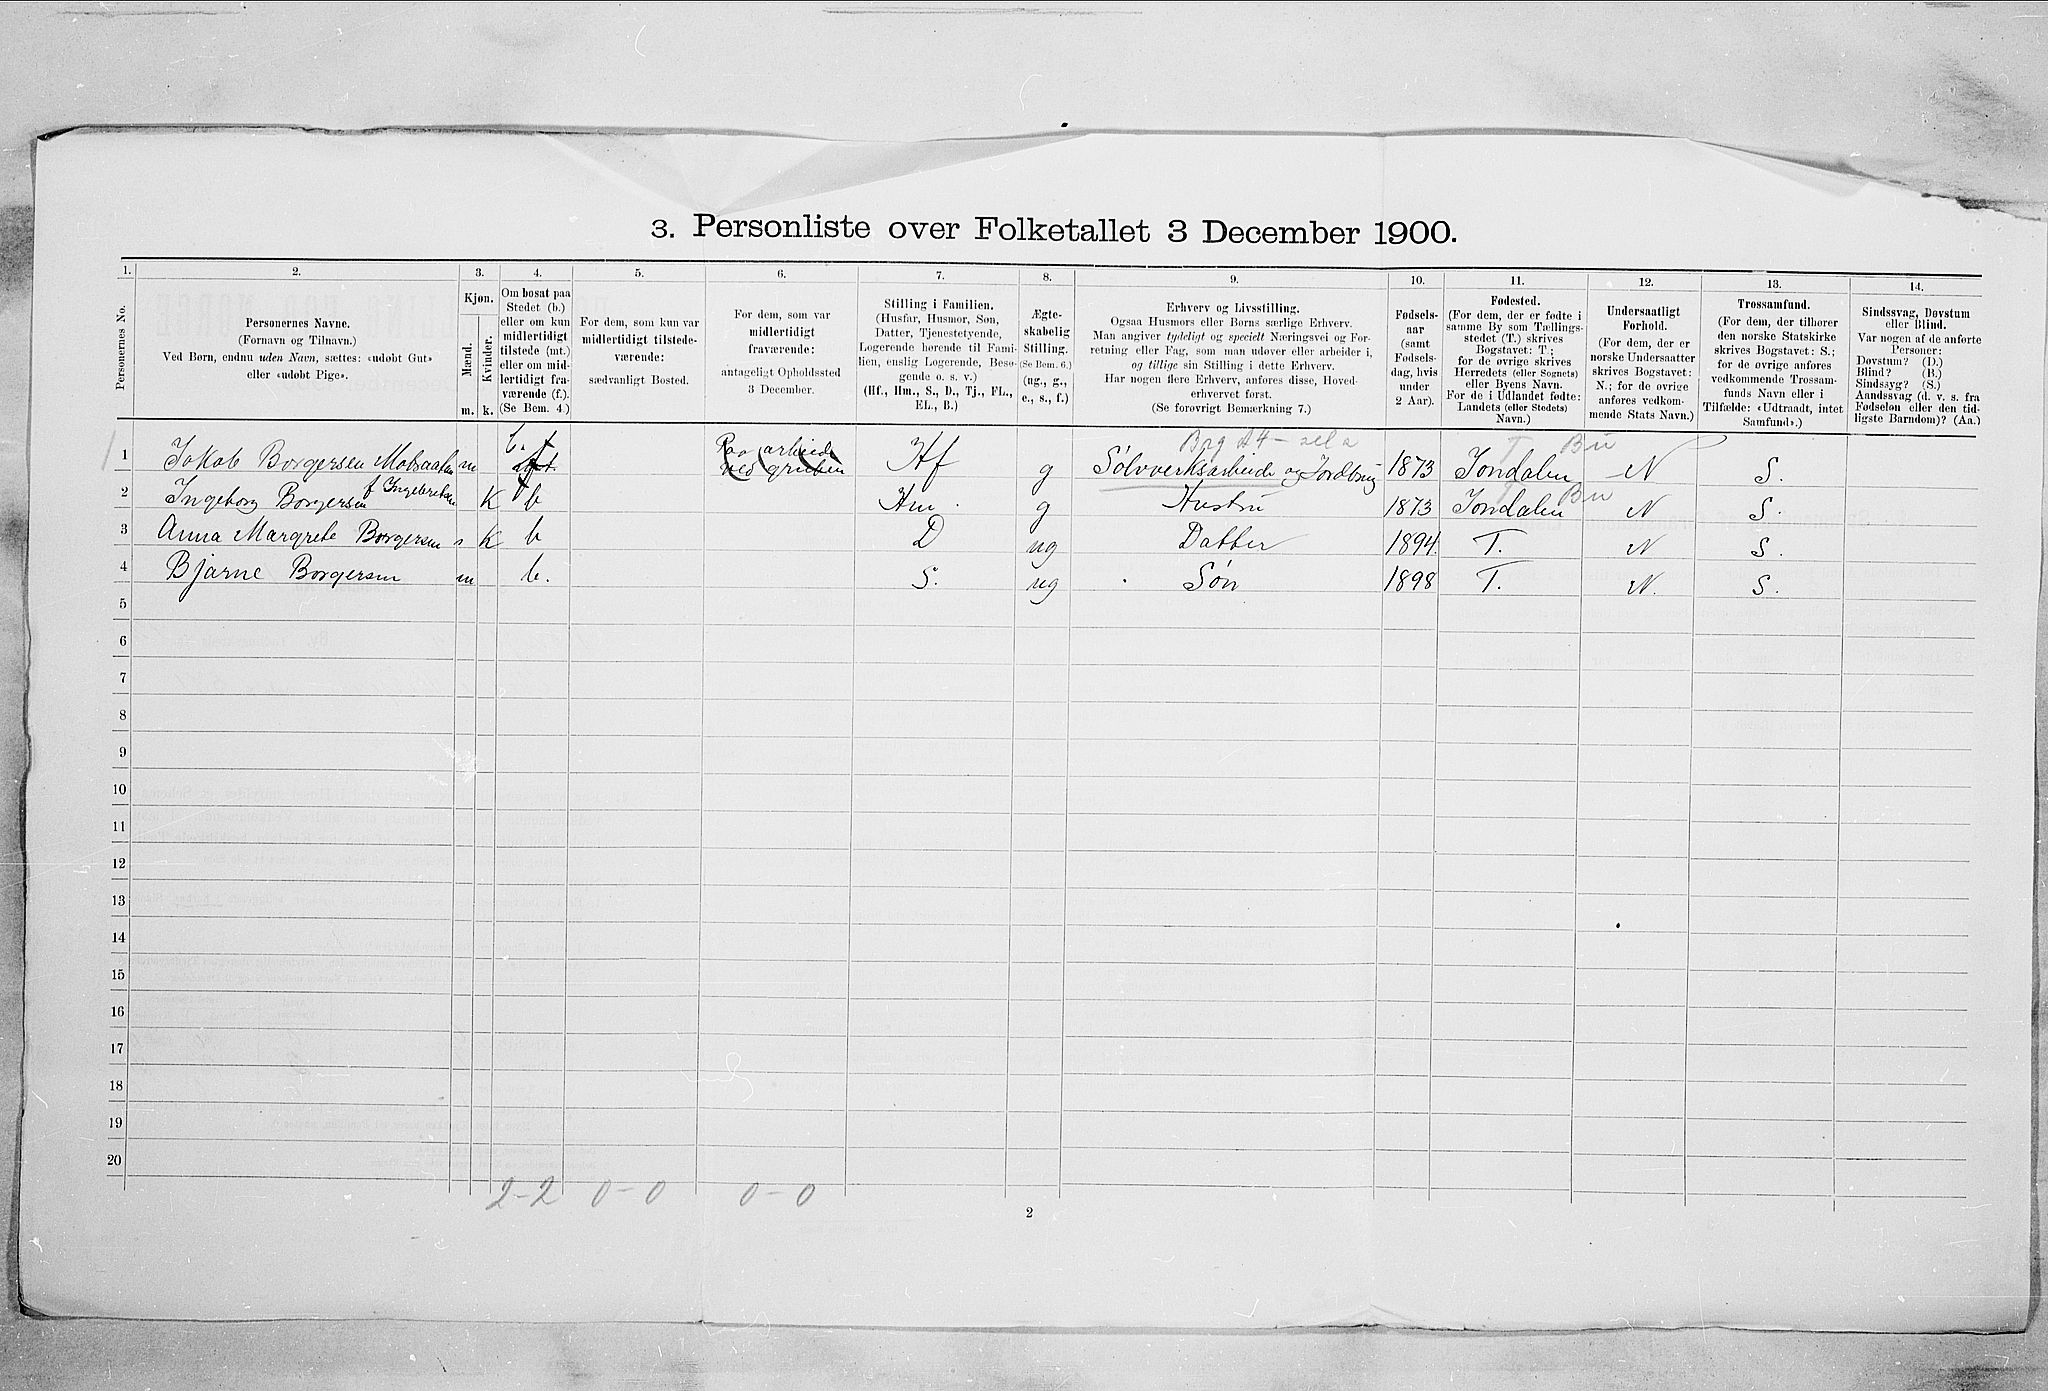 3. Personliste over Folketallet 3 December 1900.
1. 2. 3. 4. 5. 6. 7. 8. 9. 10. 11. 12. 13. 14.
Personernes No.
Personernes Navne.
(Fornavn og Tilnavn.)
Ved Børn, endnu uden Navn, sættes: «udøbt Gut»
eller «udøbt Pige».
Kjøn.
Mænd.
Kvinder.
m. k.
Om bosat paa
Stedet (b.)
eller om kun
midlertidigt
tilstede (mt.)
eller om mid-
lertidigt fra-
værende (f.).
(Se Bem. 4.)
For dem, som kun var
midlertidigt tilstede-
værende:
sædvanligt Bosted.
For dem, som var
midlertidigt
fraværende:
antageligt Opholdssted
3 December.
Stilling i Familien.
(Husfar, Husmor, Søn,
Datter, Tjenestetyende,
Logerende hørende til Fami-
lien, enslig Logerende, Besø-
gende o. s. v.)
(Hf., Hm., S., D., Tj., FL.,
EL., B.)
Ægte-
skabelig
Stilling.
(Se Bem. 6.)
(ug., g.,
e., s., f.)
Erhverv og Livsstilling.
Ogsaa Husmors eller Børns særlige Erhverv.
Man angiver tydeligt og specielt Næringsvei og For-
retning eller Fag, som man udøver eller arbeider i,
og tillige sin Stilling i dette Erhverv.
Har nogen flere Erhverv, anføres disse, Hoved-
erhvervet først.
(Se forøvrigt Bemærkning 7.)
Fødsels-
aar
(samt
Fødsels-
dag, hvis
under
2 Aar).
Fødested.
(For dem, der er fødte i
samme By som Tællings-
stedet (T.) skrives
Bogstavet: T.;
for de øvrige skrives
Herredets (eller Sognets)
eller Byens Navn.
For de i Udlandet fødte:
Landets (eller Stedets)
Navn.)
Undersaatligt
Forhold.
(For dem, der er
norske Undersaatter
skrives Bogstavet:
N.; for de øvrige
anføres vedkom-
mende Stats Navn.)
Trossamfund.
(For dem, der tilhører
den norske Statskirke
skrives Bogstavet: S.;
for de øvrige anføres
vedkommende Trossam-
funds Navn eller i
Tilfælde: «Udtraadt, intet
Samfund».)
Sindssvag, Døvstum
eller Blind.
Var nogen af de anførte
Personer:
Døvstum? (D.)
Blind? (B.)
Sindssyg? (S.)
Aandssvag (d. v. s. fra
Fødselen eller den tid-
ligste Barndom)? (Aa.)
1 Jakob Borgersen m b. Paa arbeide ved gruben Hf g Sølvverksarbeide og Jordbrug 1873 Jondalen Bu N S.
2 Ingeborg Borgersen f Ingebretsen K b Hm. g Hustru 1873 Jondalen Bu N S.
3 Anna Margrete Borgersen K b D ug Datter 1894. T. N S.
4 Bjarne Borgersen m b. S. ug Søn 1898 T. N. S.
5
6
7
8
9
10
11
12
13
14
15
16
17
18
19
20
2-2 0-0 0-0
2